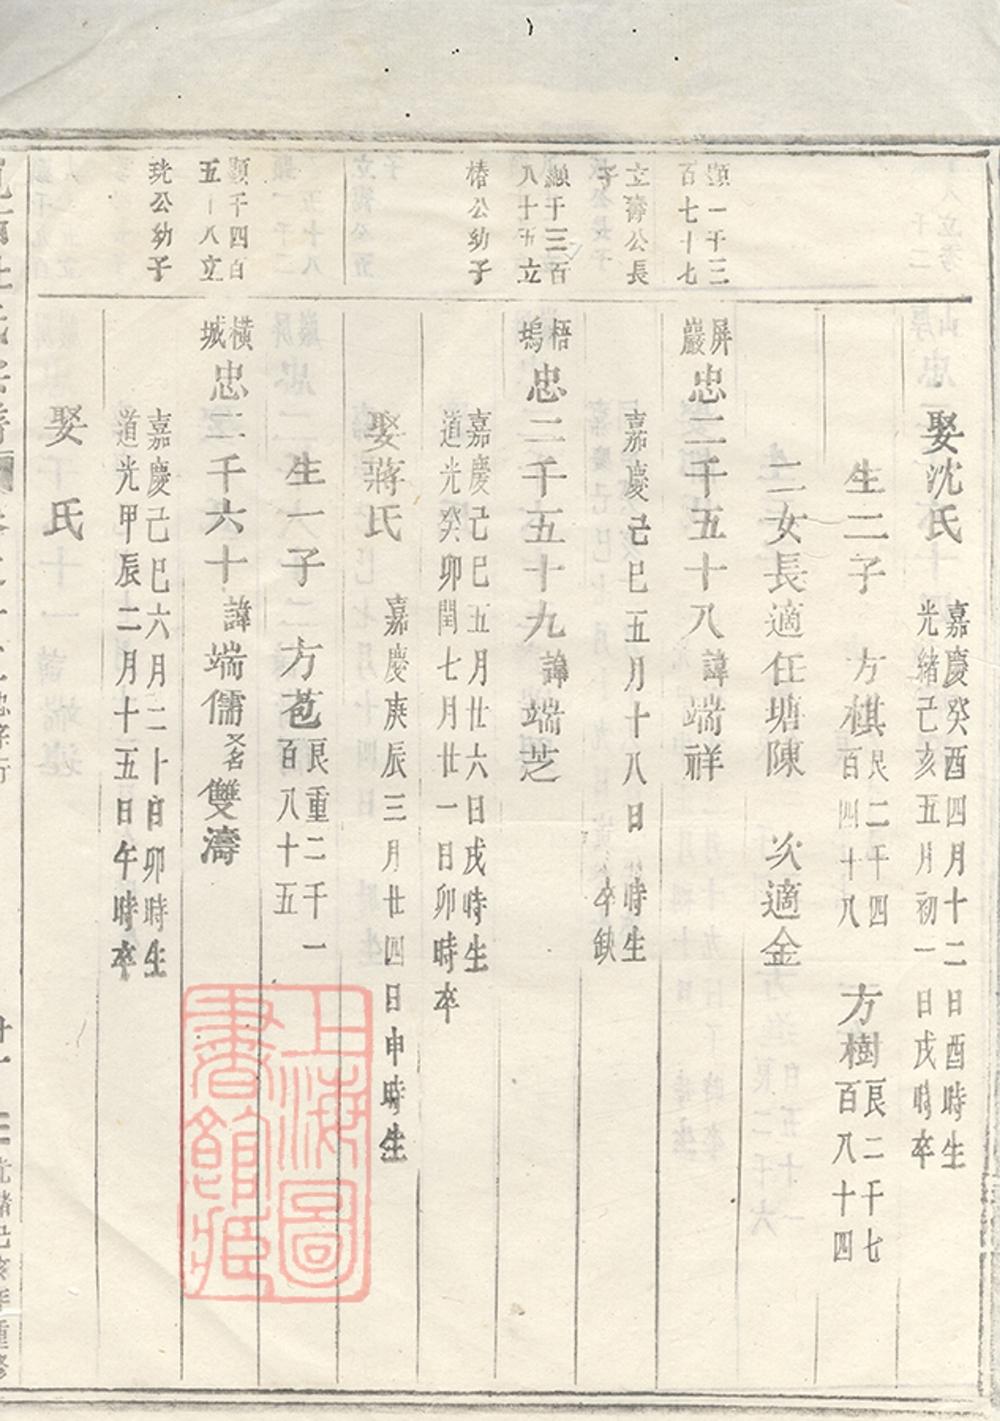 娶沈氏
嘉慶癸酉四月十二日酉時生
光緒己亥五月初一日戌時卒
生二子
方棋
良二千四
百四十八
方樹
良二千七
百八十四
二女長適任塘陳
次適金
顯一千三
百七十七
立齋公長
子
屏
巖
忠二千五百十八
諱端祥
嘉慶己巳五月十八日
時生
卒缺
顯千三百
八十五立
椿公幼子
梧
塢
忠二千五十九
諱端芝
嘉慶己巳五月廿六日戌時生
道光癸卯閏七月廿一日卯時卒
娶蔣氏
嘉慶庚辰三月廿四日申時生
生一子
方苞
良重二千一
百八十五
顯千四百
五十八立
珗公幼子
橫
城
忠二千六十
諱端儒
又名
雙濤
嘉慶己巳六月二十日卯時生
道光甲辰二月十五日午時卒
娶
氏
上海圖書館藏